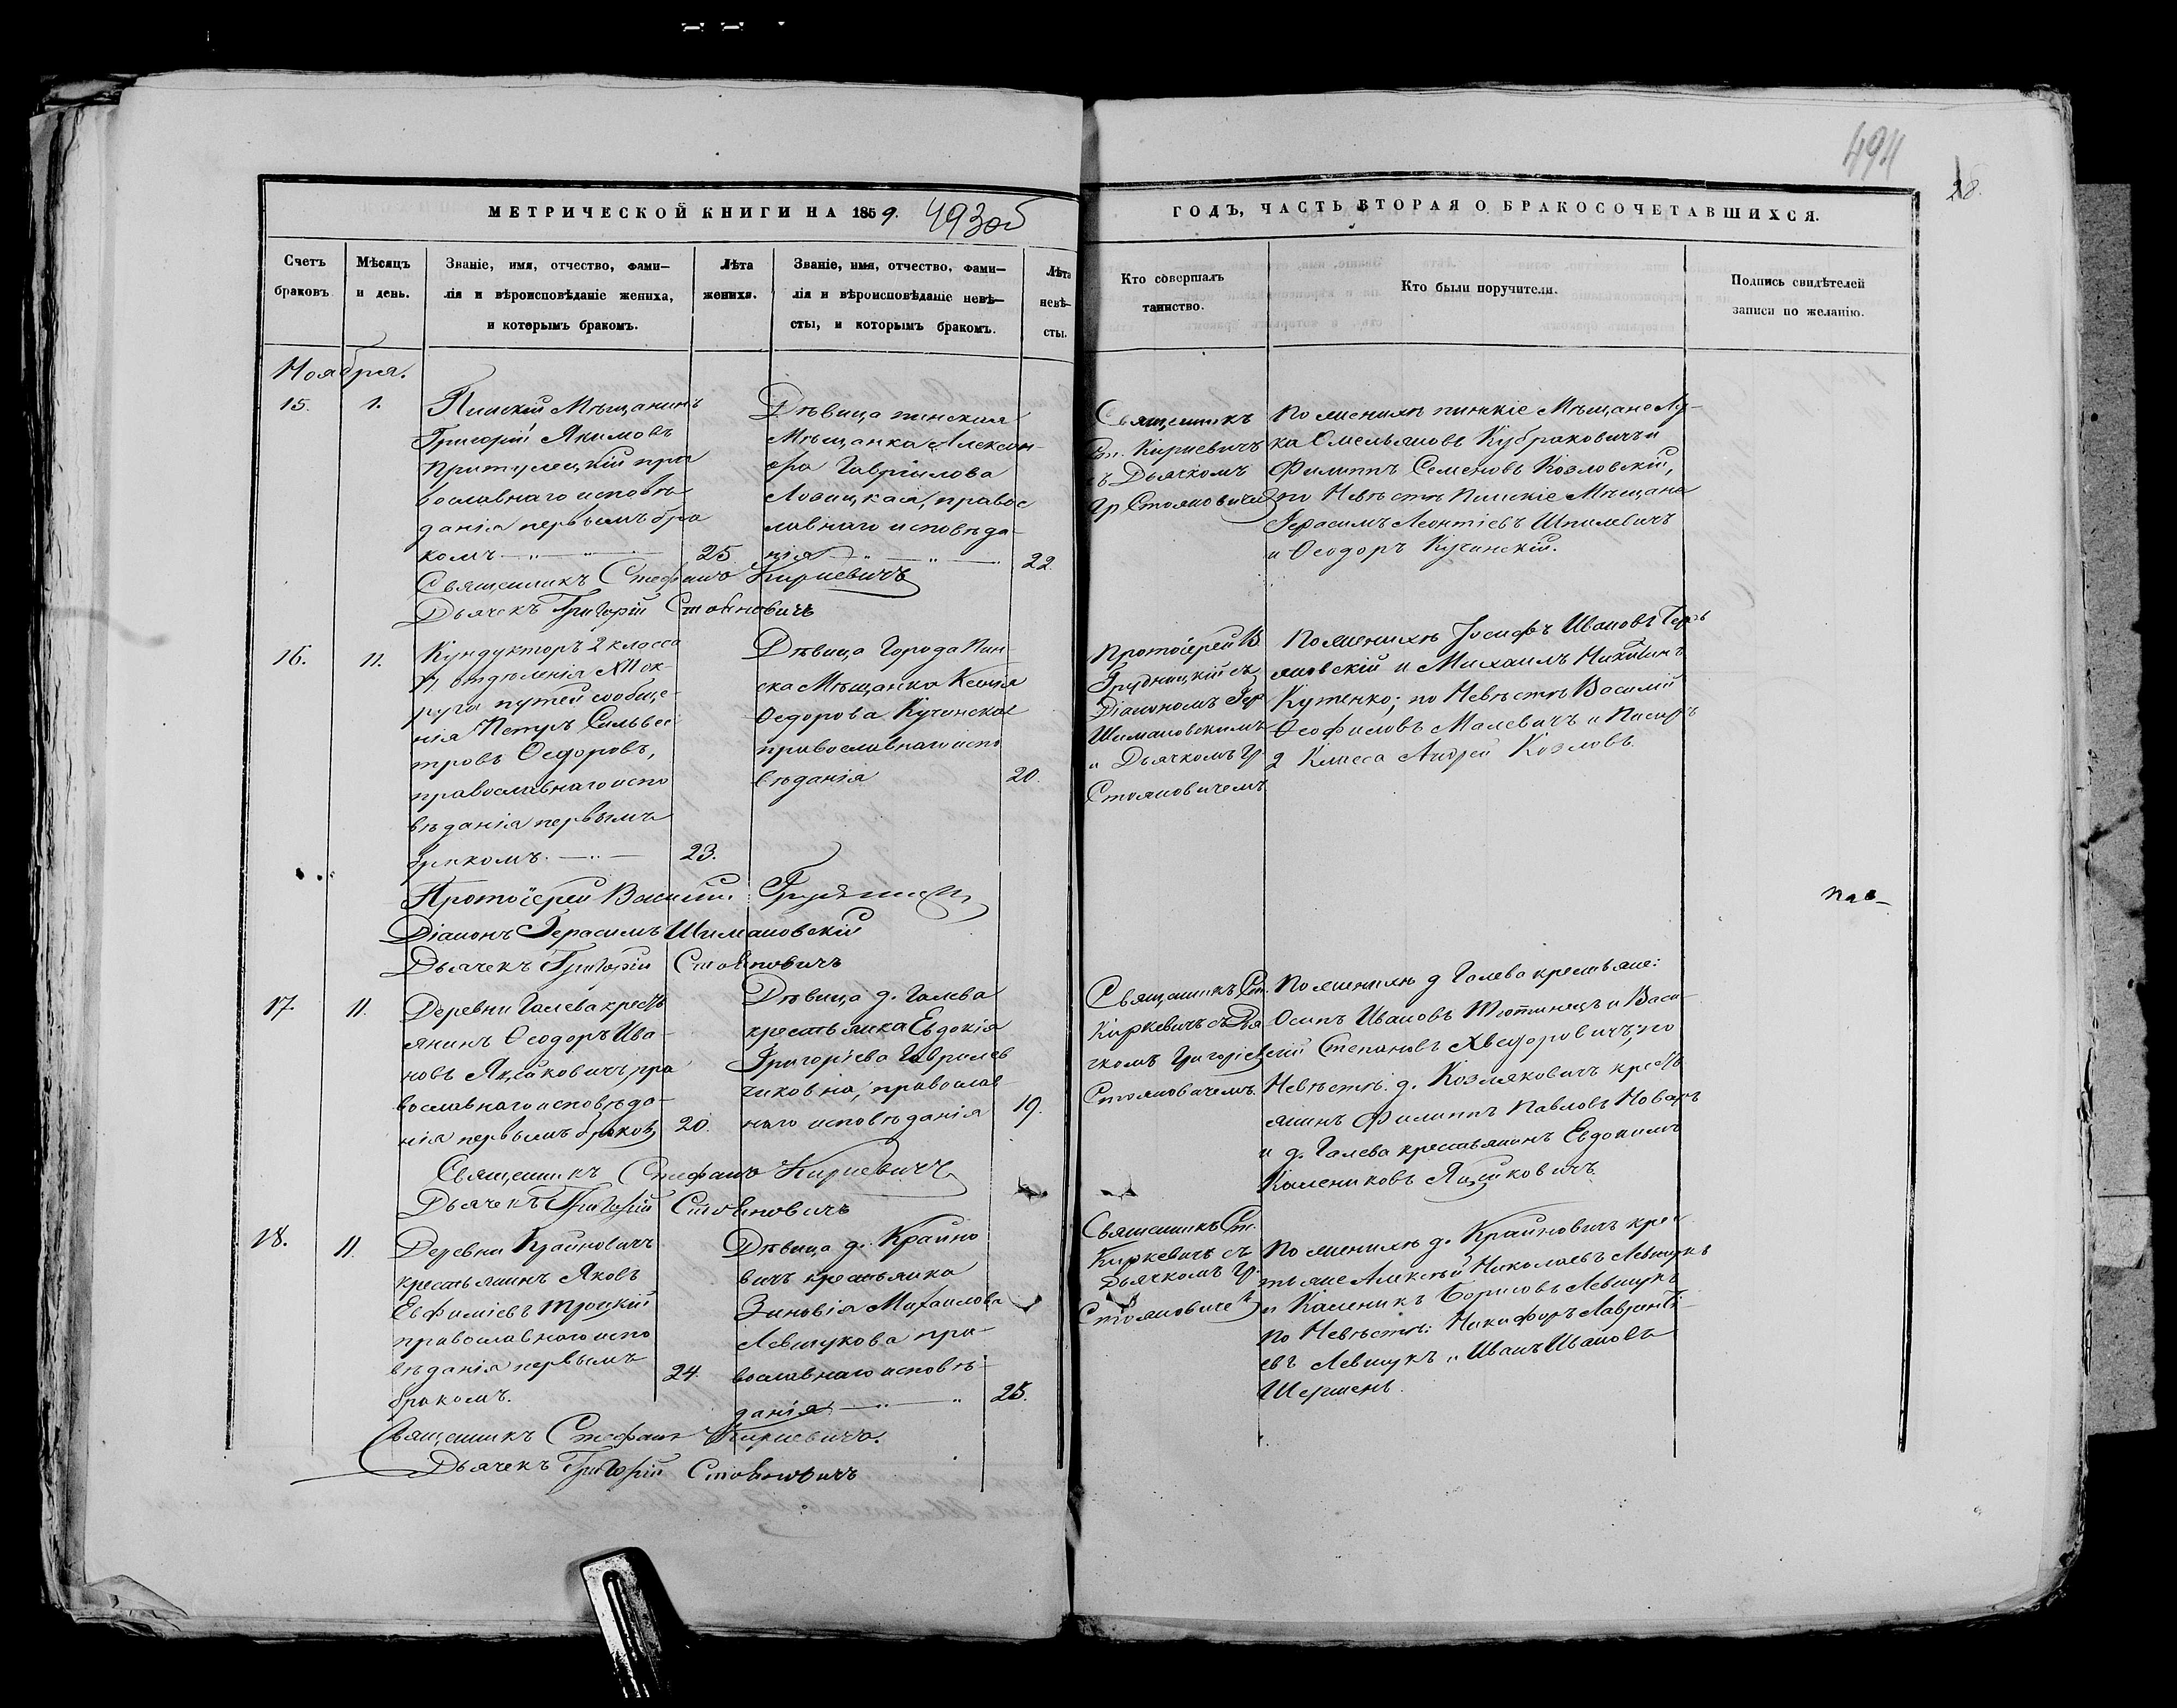 494
28.
МЕТРИЧЕСКОЙ КНИГИ НА 1859.
493об
ГОДЪ, ЧАСТЬ ВТОРАЯ О БРАКОСОЧЕТАВШИХСЯ.
Счетъ
браковъ
Мѣсяцъ
и день.
Званіе, имя, отчество, фами–
лія и вѣроисповѣданіе жениха,
и которымъ бракомъ.
Лѣта
жениха.
Званіе, имя, отчество, фами–
лія и вѣроисповѣданіе невѣ–
сты, и которымъ бракомъ.
Лѣта
невѣ–
сты.
Кто совершалъ
таинство.
Кто были поручители.
Подпись свидѣтелей
записи по желанію.
Ноября.
15.
1.
Пинскій Мѣщанинъ
Григорій Якимовъ
Притулецкій пра
вославнаго исповѣ
данія первымъ бра
комъ
25
Дѣвица пинская
Мѣщанка Алексан-
дра Гаврілова
Ловицкая, правос
лавнаго исповѣда-
нія
22.
Священникъ
Ст. Киркевичъ
съ Дьячкомъ
Гр Стояновиче
По женихѣ пинскіе Мѣщане Лу-
ка Омельяновъ Кубраковичъ и
Филиппъ Семеновъ Козловскій,
по Невѣстѣ Пинскіе Мѣщане
Герасимъ Леонтіевъ Шпилевичъ
и Ѳеодоръ Кучинскій.
Священникъ Стефанъ Киркевичъ
Дьячекъ Григорій Стояновичъ
16.
11.
Кундукторъ 2 класса
отдѣленія XII ок-
руга путей сообще-
нія Петръ Сильвес
тровъ Ѳедоровъ,
православнаго испо
вѣданія первымъ
бракомъ.
23.
Дѣвица Города Пин
ска Мѣщанка Ксенія
Ѳедорова Кучинская
православнаго испо
вѣданія
20.
Протоіерей В.
Грудницкій съ
Діакономъ Гер
Шимановскимъ
и Дьячкомъ Гр.
Стояновичемъ
По женихѣ Іосифъ Ивановъ
яновскій и Михаилъ Никитинъ
Кутенко; по Невѣстѣ Василій
Ѳеофиловъ Малевичъ и Писарь
2 Класса Андрей Козловъ.
Протоіерей Василій
Діаконъ Герасимъ Шимановскій
Дьячекъ Григорій Стояновичъ
17.
11.
Деревни Галева кресть
янинъ Ѳеодоръ Ива-
новъ Яцкаковичъ, пра
вославнаго исповѣда-
нія первымъ браком
20.
Дѣвица д. Галева
крестьянка Евдокія
Григоріева Гаврилов
чиковна, православ-
наго исповѣданія
19.
Священникъ Ст.
Киркевичъ съ Дья
чкомъ Григоріе
Стояновичемъ.
По женихѣ д Галева крестьяне:
Осипъ Ивановъ Тютинецъ и Васи-
лій Степановъ Хведоровичъ; по
Невѣстѣ: д. Козляковичъ кресть
янинъ Филиппъ Павловъ
и д. Галева крестьянинъ Евдокимъ
Калениковъ
Священникъ Стефанъ Киркевичъ
Дьячекъ Григорій Стояновичъ
18.
11.
Деревни Крайновичъ
крестьянинъ Яковъ
Евфиміевъ Троцкій
православнаго испо
вѣданія первымъ
бракомъ.
24.
Дѣвица д. Крайно
вичъ крестьянка
Зиновія Михаилова
Левчукова пра-
вославнаго исповѣ-
данія
25.
Священникъ Ст.
Киркевичъ съ
Дьячкомъ Гр.
Стояновиче
По женихѣ д. Крайновичъ крес
тьяне Алексѣй Николаевъ Левчукъ
и Каленикъ Борисовъ Левчукъ
по Невѣстѣ: Никифоръ Лаврентi-
евъ Левчукъ и Иванъ Ивановъ
Шершень.
Священникъ Стефанъ Киркевичъ.
Дьячекъ Григорій Стояновичъ